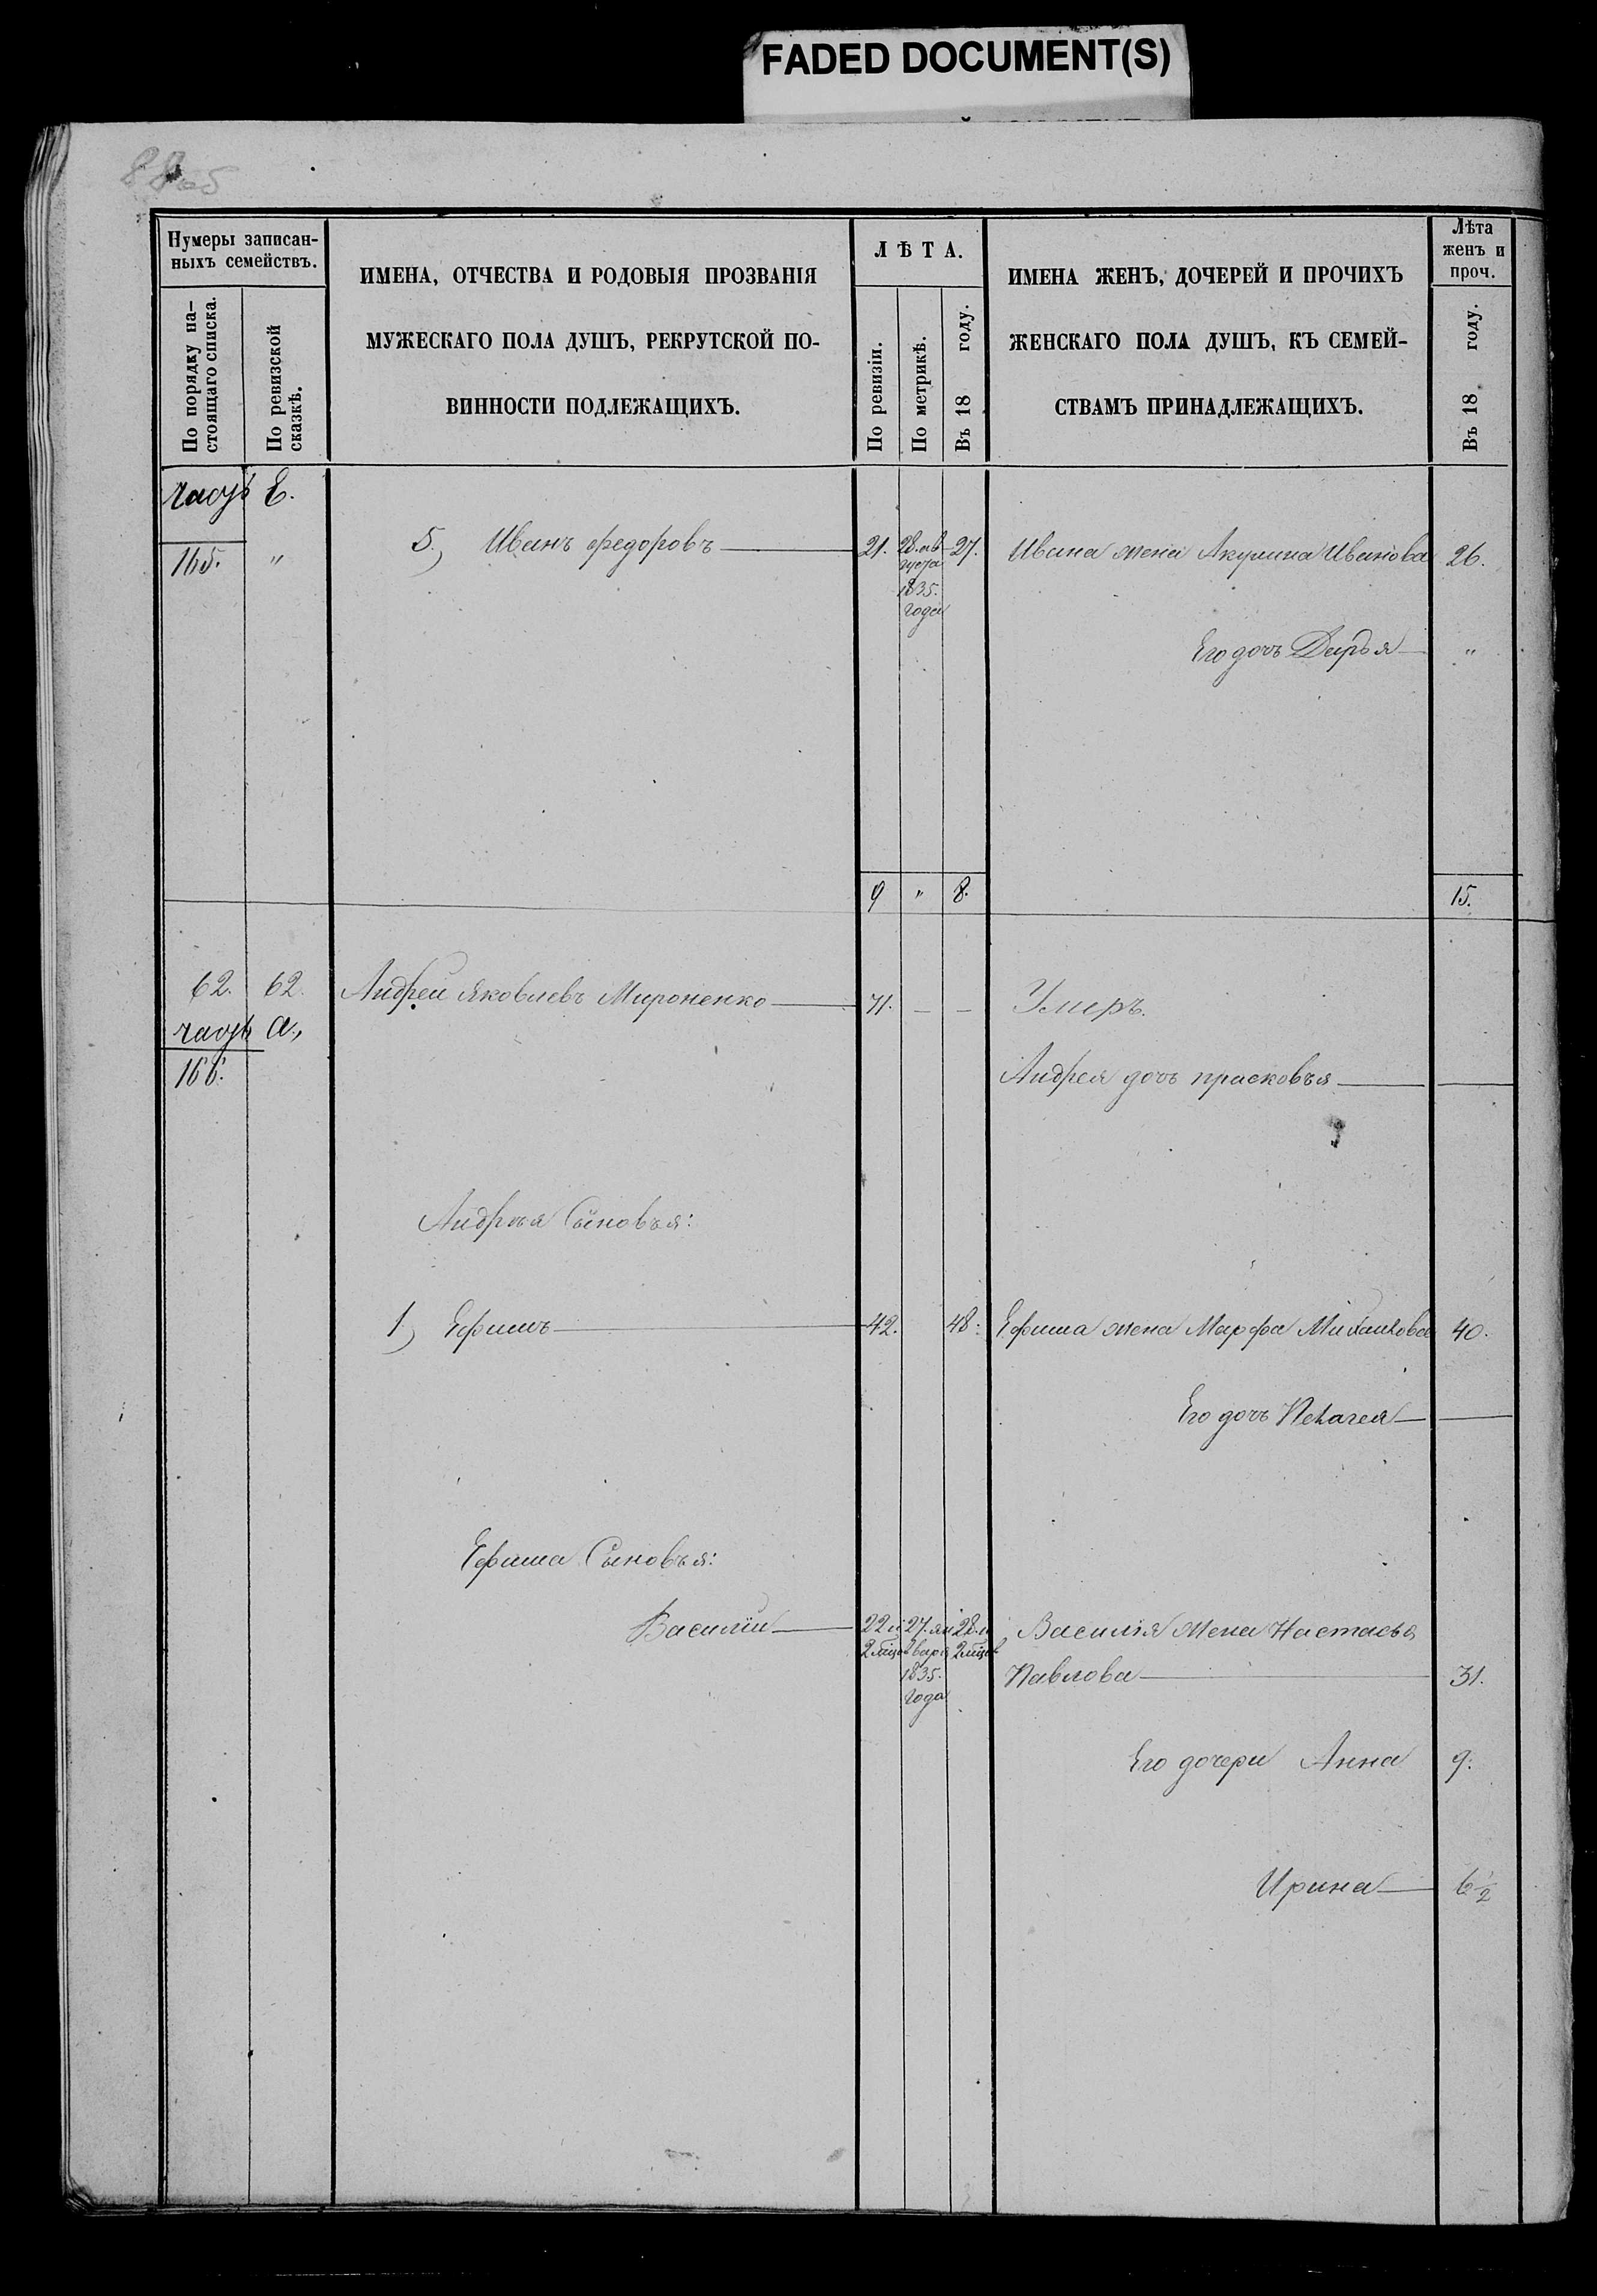 FADED DOCUMENT(S)
88об
Нумеры записан-
ныхъ семействъ.
По порядку на-
стоящаго списка.
По ревизской
сказкѣ.
ИМЕНА, ОТЧЕСТВА И РОДОВЫЯ ПРОЗВАНІЯ
МУЖЕСКАГО ПОЛА ДУШЪ, РЕКРУТСКОЙ ПО-
ВИННОСТИ ПОДЛЕЖАЩИХЪ.
ЛѢТА.
По ревизіи.
По метрикѣ.
Въ 18 году.
ИМЕНА ЖЕНЪ, ДОЧЕРЕЙ И ПРОЧИХЪ
ЖЕНСКАГО ПОЛА ДУШЪ, КЪ СЕМЕЙ-
СТВАМЪ ПРИНАДЛЕЖАЩИХЪ.
Лѣта
женъ и
проч.
Въ 18 году.
часть Е.
165. "
5, Иванъ федоровъ 21. 28. ав 27. Ивана жена Акулина Иванова 26.
густа
1835.
года
Его дочь Дарья "
9 " 8. 15.
62. 62. Андрей Яковлевъ Мироненко 71. — — Умеръ.
часть а,
166. Андрея дочь прасковья
Андрея Сыновья:
1, Ефимъ 42. 48. Ефима жена Марфа Михайлова 40.
Его дочь Пелагея
Ефима Сыновья:
Василій 22 и 27. ян 28. и Василія Жена Настасья
2 мѣсц варя 2 мѣсц
1835. Павлова 31.
года
Его дочери Анна 9.
Ирина 6 1/2